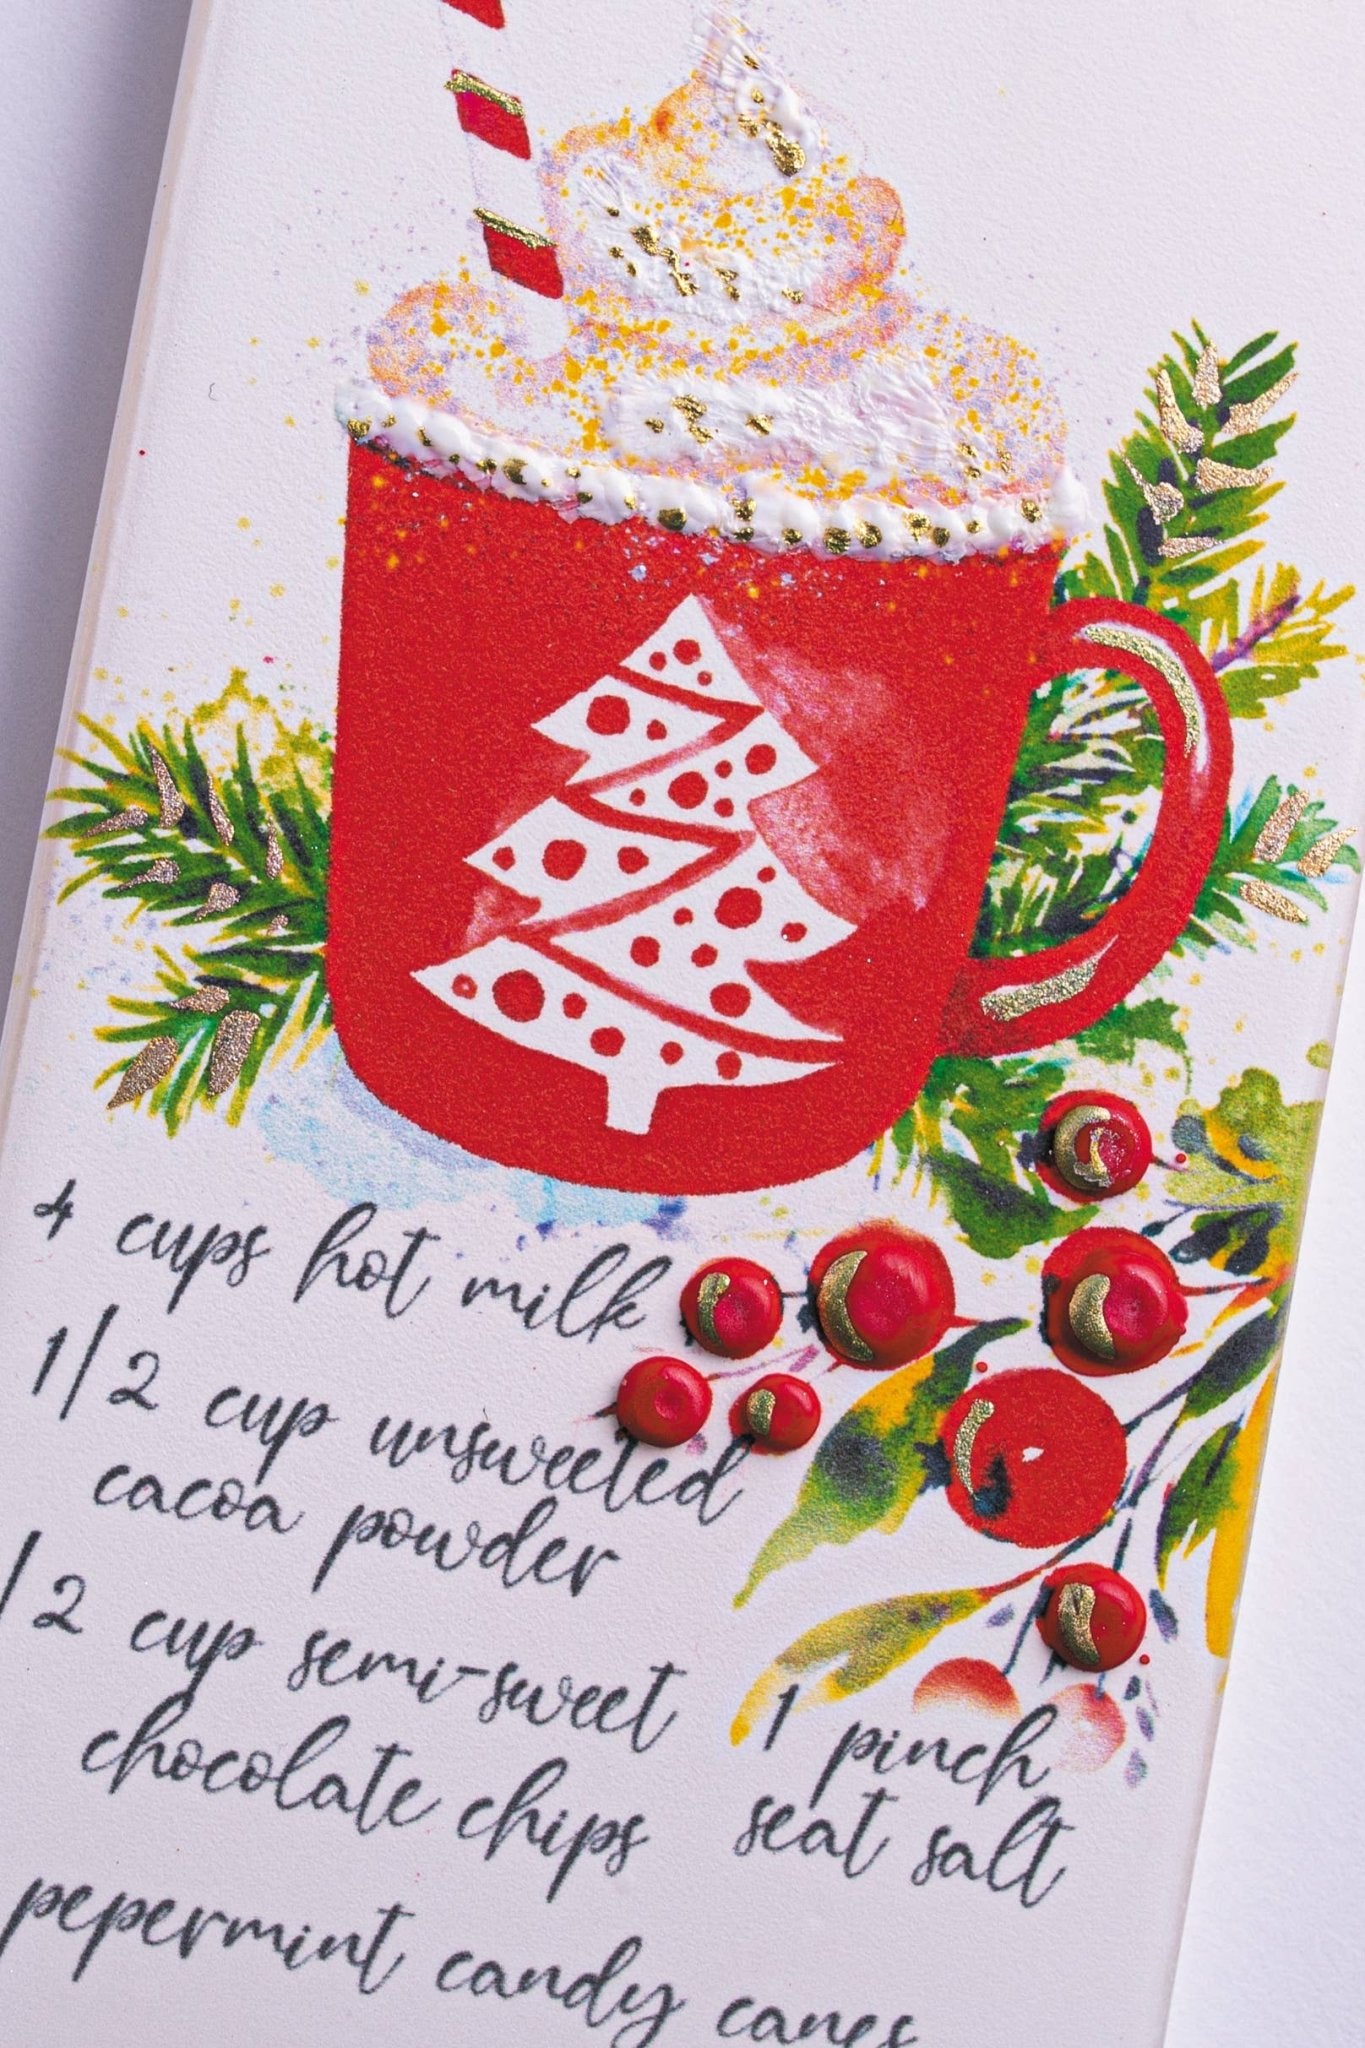 4 cups hot milk
1/2 cup unsweeted
cacoa powder
/2 cup semi-sweet
chocolate chips
1 pinch
seat salt
pepermint candy canes